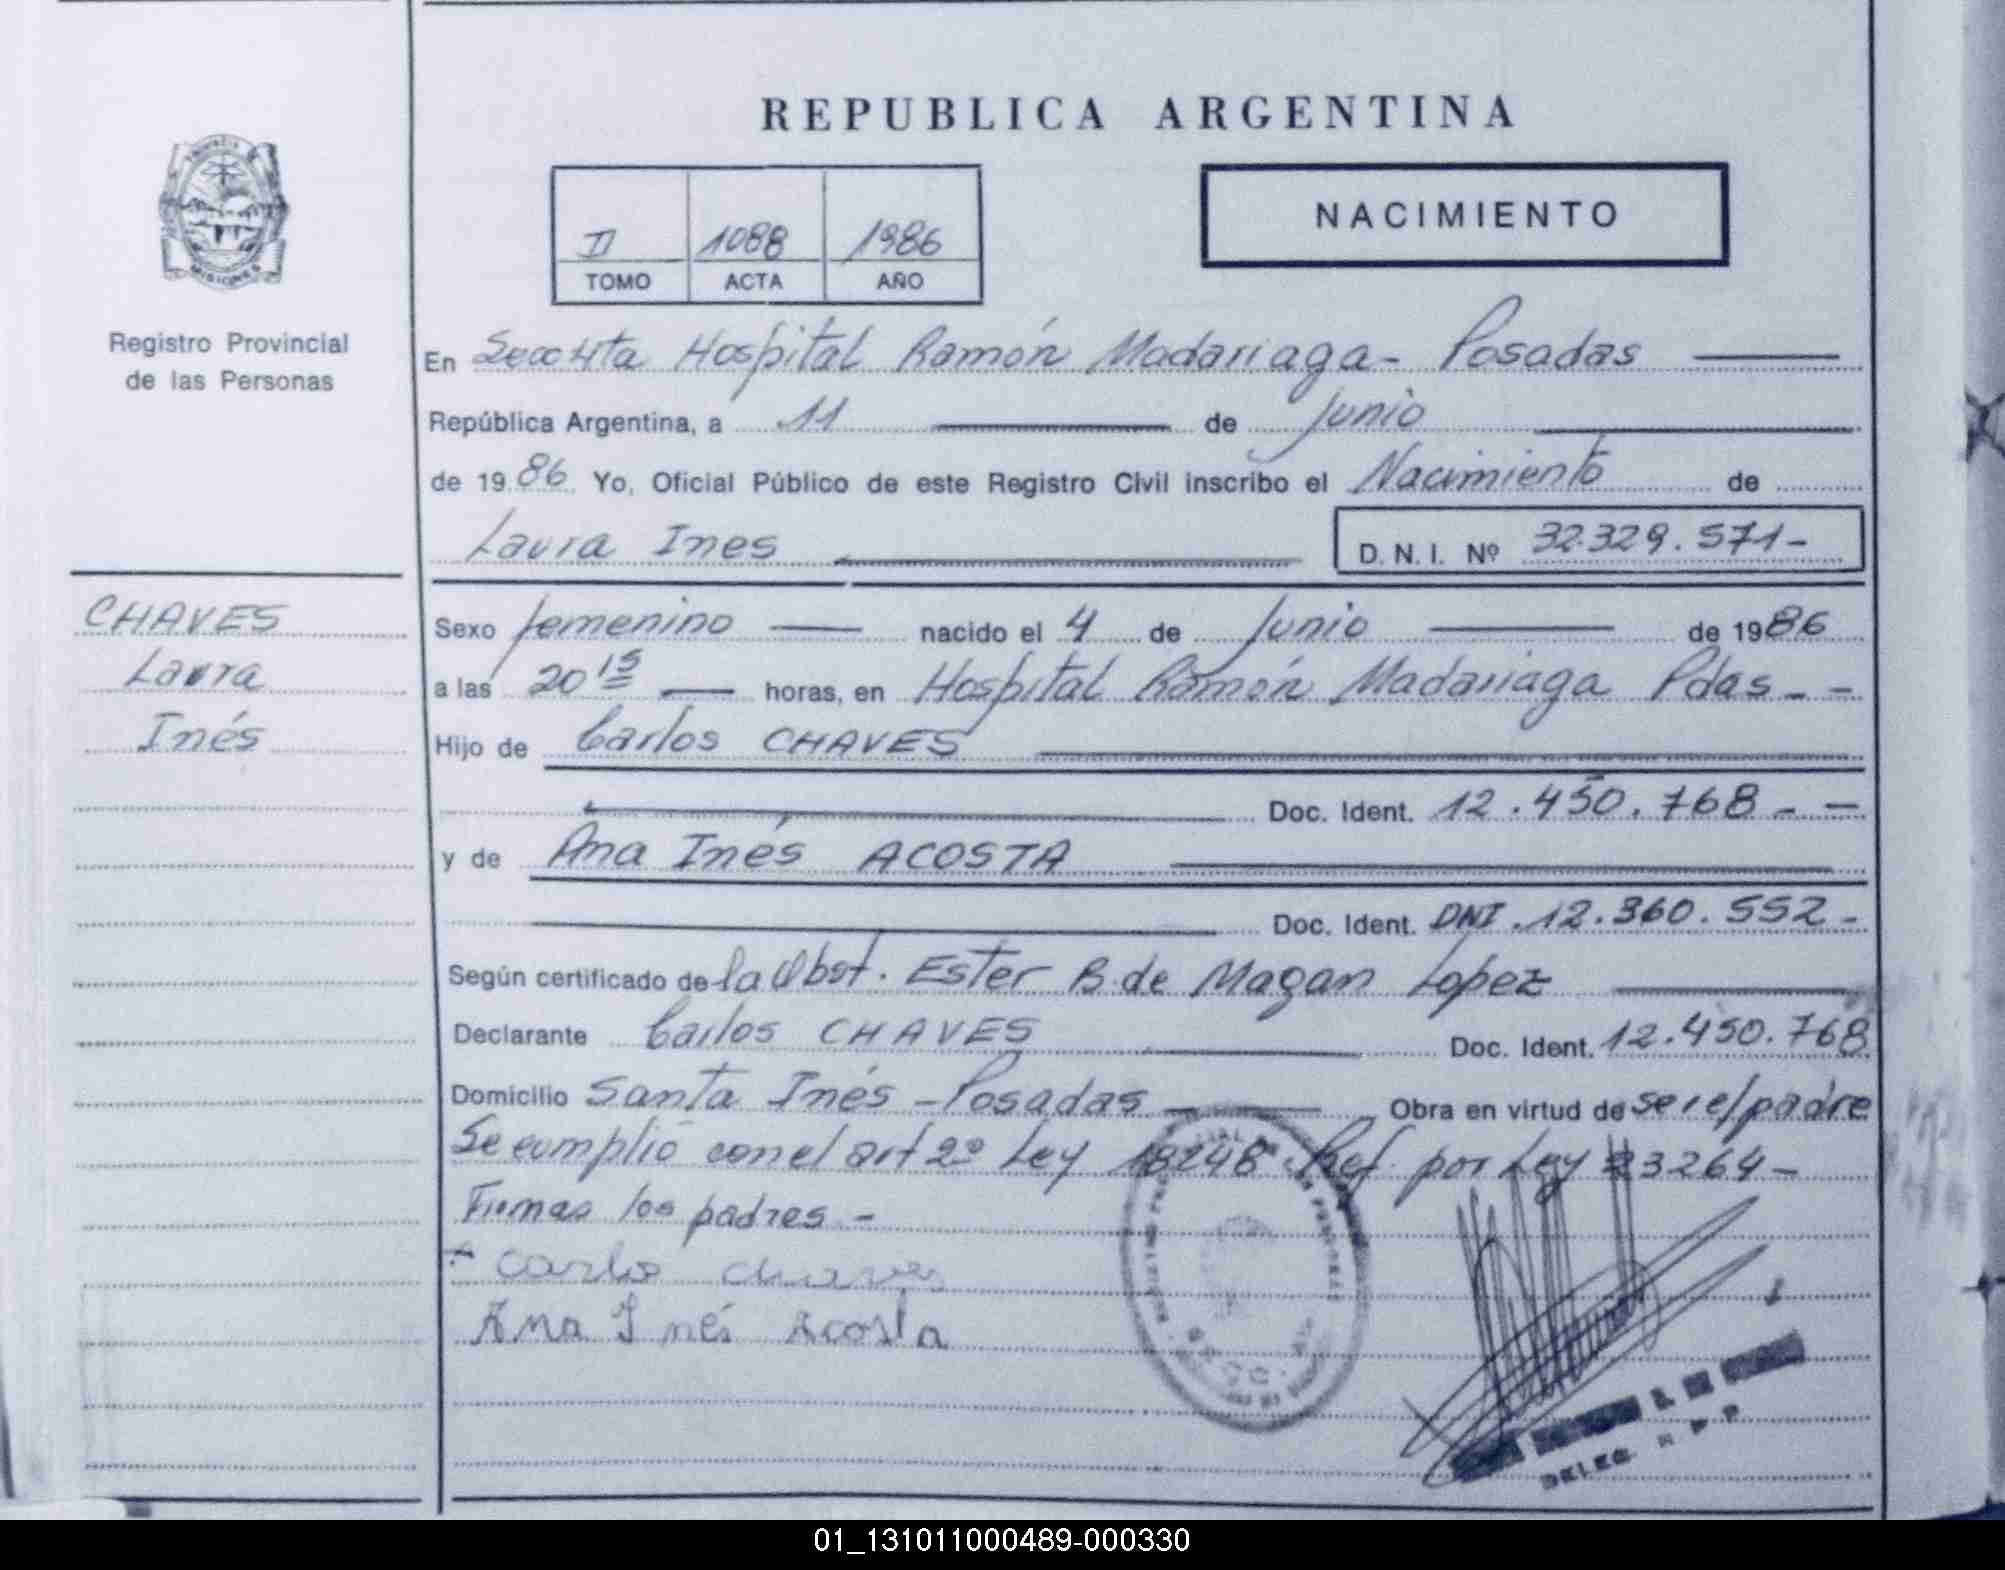 REPUBLICA ARGENTINA
NACIMIENTO
II 1088 1986
TOMO ACTA AÑO
MISIONES
Registro Provincial
de las Personas
En Secc 4ta Hospital Ramón Madariaga - Posadas
República Argentina, a 11 de Junio
de 1986 Yo, Oficial Público de este Registro Civil inscribo el Nacimiento de
Laura Ines D. N. I. Nº 32.329.571-
CHAVES
Laura
Inés
Sexo femenino nacido el 4 de Junio de 1986
a las 20 15 horas, en Hospital Ramón Madariaga Pdas - -
Hijo de Carlos CHAVES
Doc. Ident. 12.450.768 - -
y de Ana Inés ACOSTA
Doc. Ident. DNI. 12.360.552 -
Según certificado de la Obst. Ester B. de Magan Lopez
Declarante Carlos CHAVES Doc. Ident. 12.450.768
Domicilio Santa Inés - Posadas Obra en virtud de ser el padre
Se cumplió con el art 2º Ley 18248 Ref. por Ley 23264 -
Firmas los padres -
Carlo Chaves
Ana Inés Acosta
DELEG R P P
01_131011000489-000330